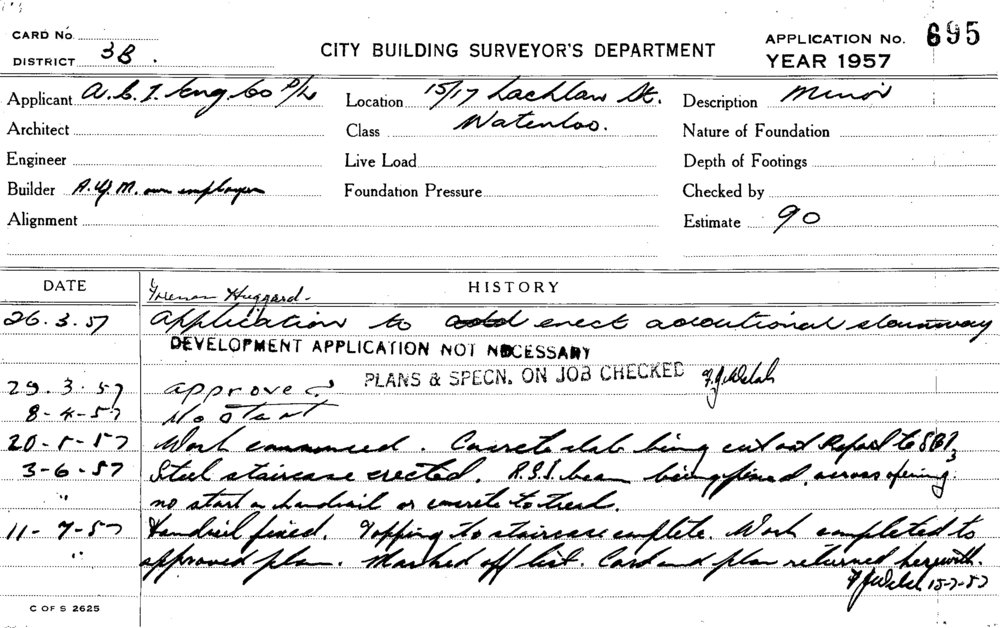 CARD No.
DISTRICT 3B.
CITY BUILDING SURVEYOR'S DEPARTMENT
APPLICATION No. 695
YEAR 1957
Applicant A.C.I. Eng Co P/L
Location 15/17 Lachlan St. Waterloo.
Description Minor
Architect
Class
Nature of Foundation
Engineer
Live Load
Depth of Footings
Builder A.G.M. own employees
Foundation Pressure
Checked by
Alignment
Estimate 90
DATE
HISTORY
Foreman Huggard.
26.3.57 Application to add erect additional stairway
DEVELOPMENT APPLICATION NOT NECESSARY
PLANS & SPECN. ON JOB CHECKED
29.3.57 approved
8-4-57 No start
20-5-57 Work commenced. Concrete slab being cut out Report to
3-6-57 Steel staircase erected. R.S.J. beam being fixed across opening.
" no start on handrail or concrete to treads.
11-7-57 Handrail fixed. Topping to staircase complete. Work completed to
" approved plan. Marked off list. Card and plan returned herewith.
F.J.Welsh 15-7-57
C OF S 2625